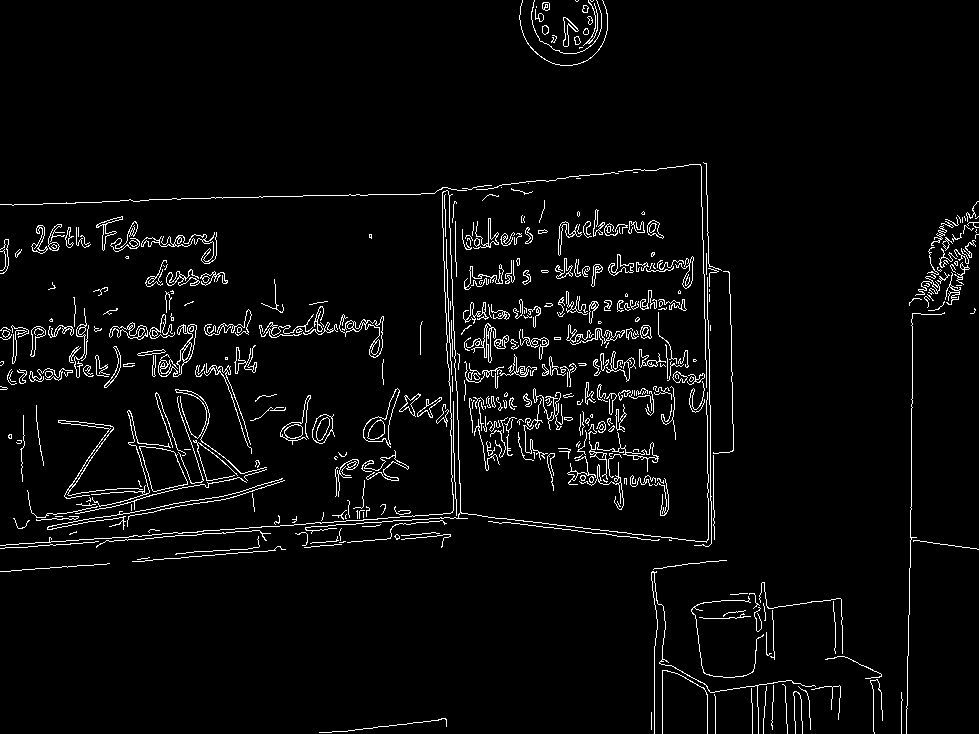 26th February
Lesson
opping - reading and vocabulary
(czwartek) - Test unit 4
ZHR - da d xxx
jest
baker's - piekarnia
chemist's - sklep chemiczny
clothes shop - sklep z ciuchami
coffee shop - kawiarnia
computer shop - sklep
music shop - sklep muzyczny
- kiosk
zoologiczny